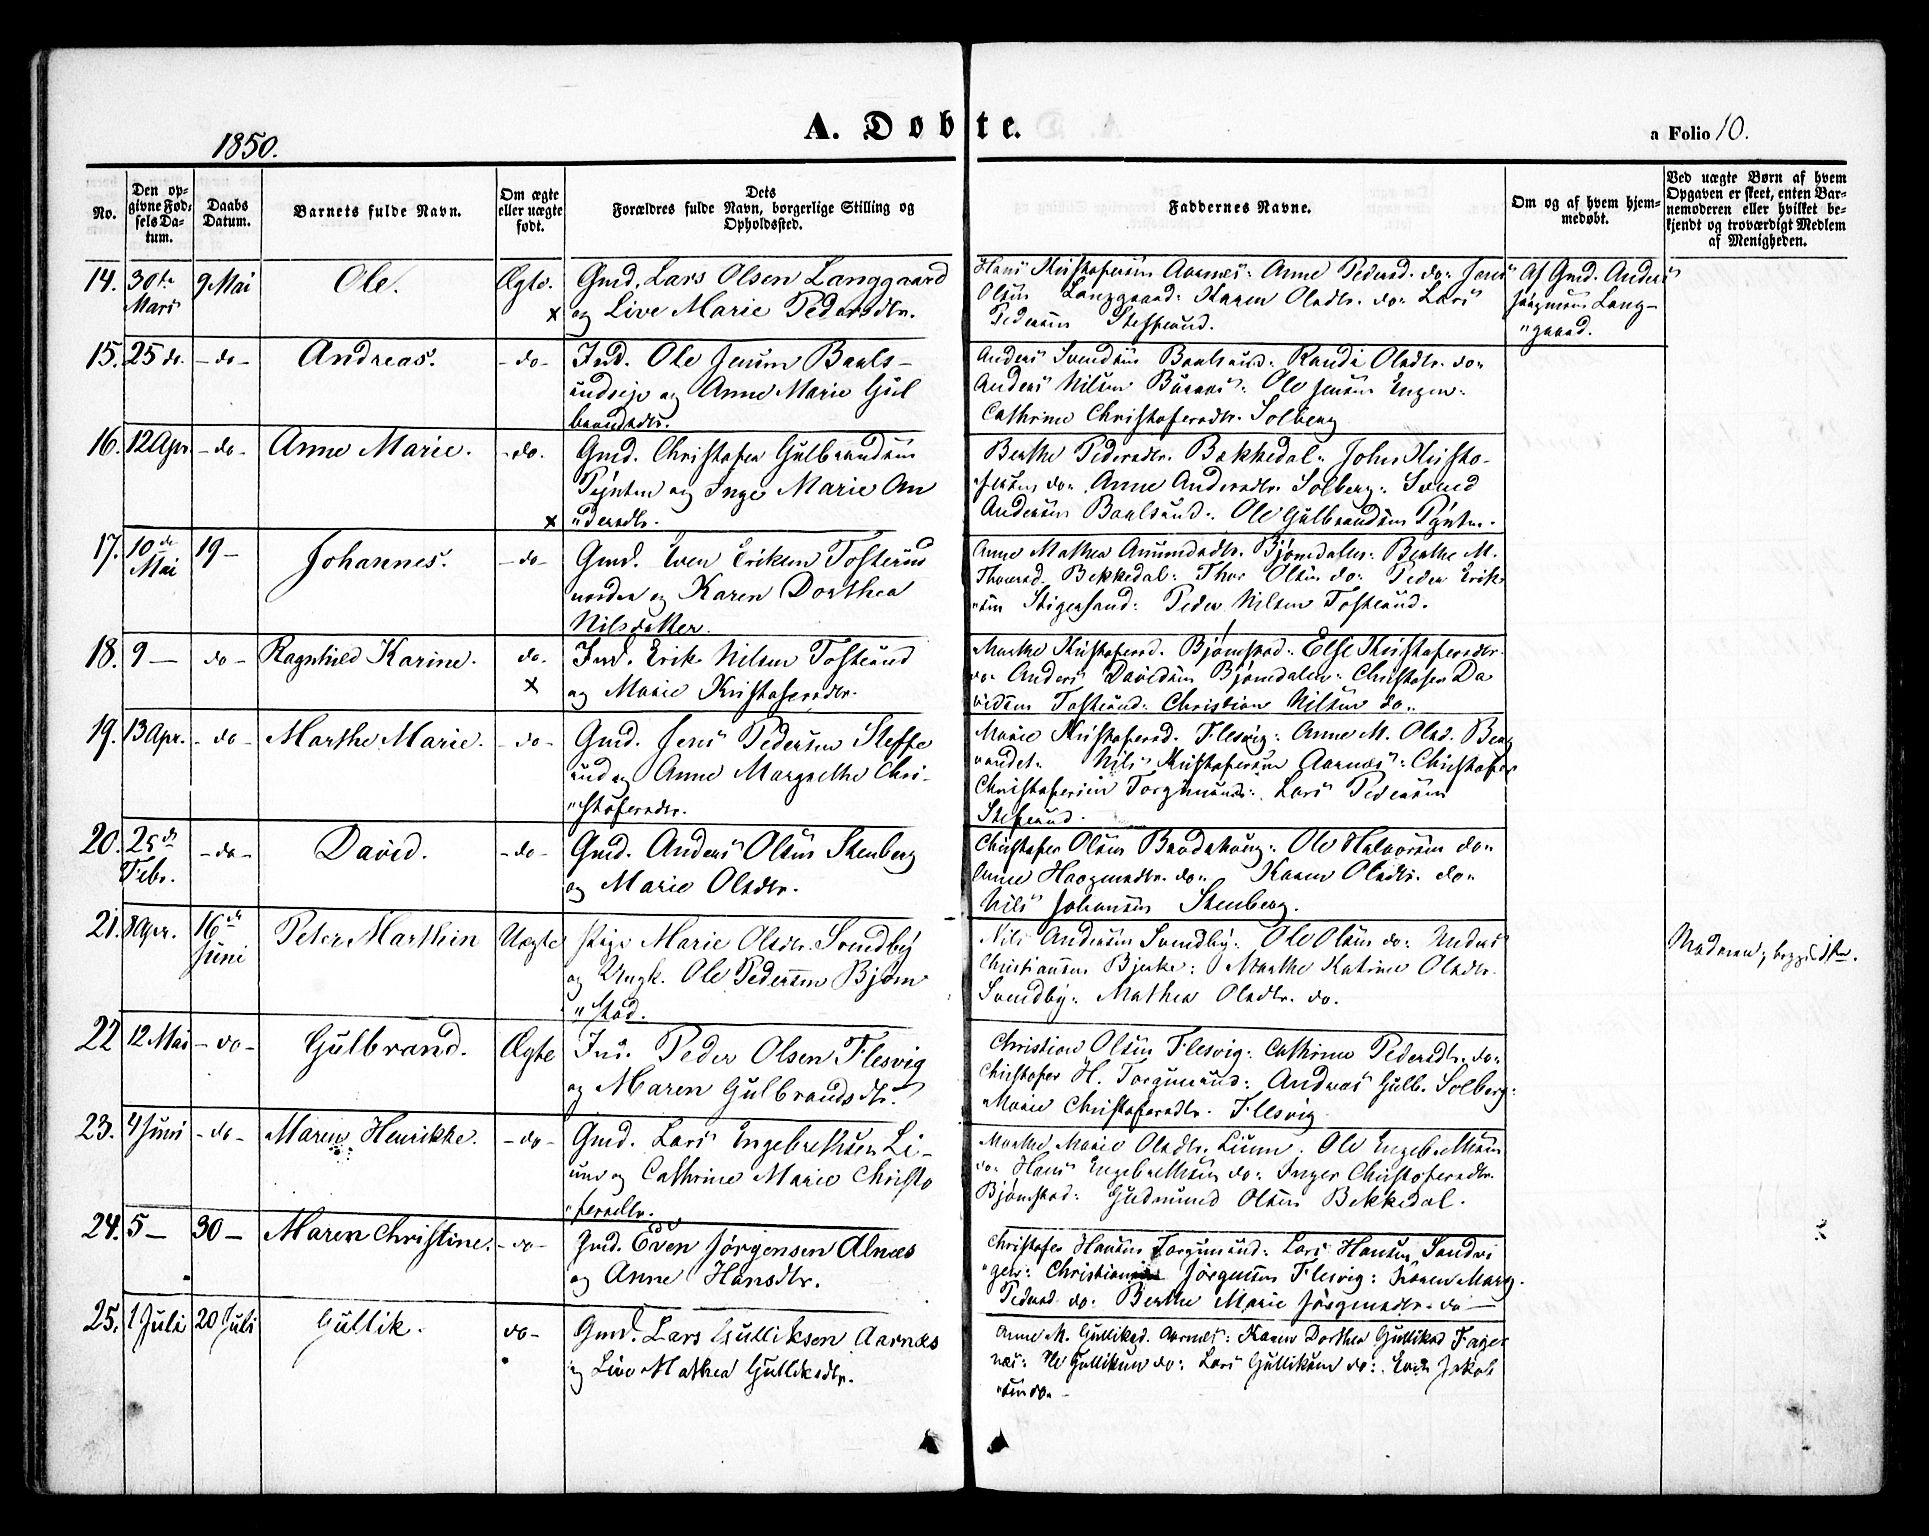 A. Døbte.
1850.
a Folio 10.
No.
Den op-
givne Fød-
sels Da-
tum.
Daabs
Datum.
Barnets fulde Navn.
Om ægte
eller uægte
født.
Dets
Forældres fulde Navn, borgerlige Stilling og
Opholdssted.
Faddernes Navne.
Om og af hvem hjem-
medøbt.
Ved uægte Børn af hvem
Opgaven er skeet, enten Bar-
nemoderen eller hvilket be-
kjendt og troværdigt Medlem
af Menigheden.
14. 30te Mars
9 Mai
Ole.
Ægte. x
Gmd. Lars Olsen Langgaard
og Live Marie Pedersdtr.
Hans Kristofersen Aarnes: Anne Pedersd. do: Jens
Olsen Langgaard: Karen Olsdtr. do: Lars
Pedersen Stefferud.
Af Gmd. Anders
Jørgensen Lang-
"gaard.
15. 25 do.
- do -
Andreas.
- do -
Ind. Ole Jensen Baals-
rudeje og Anne Marie Gul
brandsdtr.
Anders Svendsen Baalsrud: Randi Olsdtr. do:
Anders Nilsen: Ole Jensen Engen:
Cathrine Christofersdtr. Solberg
16. 12 Apr.
- do -
Anne Marie.
- do. x
Gmd. Christofer Gulbrandsen
Pynten og Inge Marie An
"dersdtr.
Berthe Pedersdtr. Bekkedal: John Kristo-
fersen do: Anne Andersdtr. Solberg: Svend
Andersen Baalsrud: Ole Gulbrandsen Pynten.
17. 10de Mai
19 -
Johannes.
- do -
Gmd. Even Eriksen Tosterud
nordre og Karen Dorthea
Nilsdatter.
Anne Mathea Amundsdtr. Bjørndalen: Berthe M.
Thorsd. Bekkedal: Thor Olsen do: Peder Erik-
"sen Stigersand: Peder Nilsen Tosterud.
18. 9 -
do -
Ragnhild Karine.
do. x
Ind. Erik Nilsen Tosterud
og Marie Kristofersdtr.
Marthe Kristofersd. Bjørnstad: Else Kristofersdtr.
do: Anders Davidsen Bjørndalen: Christofer Da
vidsen Tosterud: Christian Nilsen do:
19. 13 Apr.
- do -
Marthe Marie.
- do -
Gmd. Jens Pedersen Steffe
rud og Anne Margrethe Chri-
"stofersdtr.
Marie Kristofersd. Flesvig: Anne M. Olsd. Berg
Nils Kristofersen Aarnæs: Christofer
Christofersen Torgimrud: Lars Pedersen
Stefrud.
20. 25de Febr.
- do -
David.
- do -
Gmd. Anders Olsen Stenberg
og Marie Olsdtr.
Christofer Olsen: Ole Halvorsen do:
Anne do: Karen Olsdtr. do:
Nils Johansen Stenberg.
21. 8 Apr.
16de Juni
Peter Marthin
Uægte
Pige Marie Olsdtr. Svendby
og Ungk. Ole Pedersen Bjørn
"stad.
Nils Andersen Svendby: Ole Olsen do:
Christiansen Bjerke: Marthe Katrine Olsdtr.
Svendby: Mathea Olsdtr. do.
Moderen;
22 12 Mai
- do -
Gulbrand.
Ægte
Ind. Peder Olsen Flesvig
og Maren Gulbrandsdtr.
Christian Olsen Flesvig: Cathrine Pedersdtr. do:
Christofer H. Torgimrud: Andreas Gulb. Solberg:
Marie Christofersdtr. Flesvig
23. 4 Juni
- do -
Maren Henrikke.
- do -
Gmd. Lars Engebrethsen Li-
und og Cathrine Marie Christo
"fersdtr.
Marthe Marie Olsdtr. Liunn. Ole Engebrethsen
do: Hans Engebrethsen do: Inger Christofersdtr.
Bjørnstad: Gudmund Olsen Bekkedal.
24. 5 -
30 -
Maren Christine.
- do -
Gmd. Even Jørgensen Alnæs
og Anne Hansdtr.
Christofer Hansen Torgimrud: Lars Hansen Sandvi
"gen: Christian Jørgensen Flesvig: Karen Marg.
Pedersd. do: Berthe Marie Jørgensdtr. do -
25. 1 Juli
20 Juli
Gullik.
do -
Gmd. Lars Gulliksen Aarnæs
og Live Mathea Gulliksdtr.
Anne M. Gulliksd. Aarnes: Karen Dorthea Gulliksd Fager
næs: Ole Gulliksen do: Lars Gulliksen do: Erik Jakob
"sen do. -